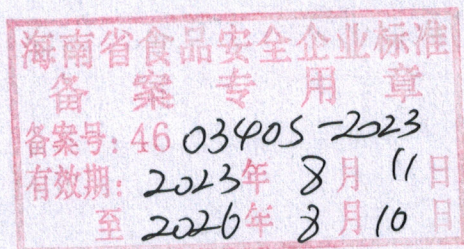 海南省食品安全企业标准
备案专用章
备案号：46 03405-2023
有效期：2023年 8月 11日
至 2026年 8月 10日